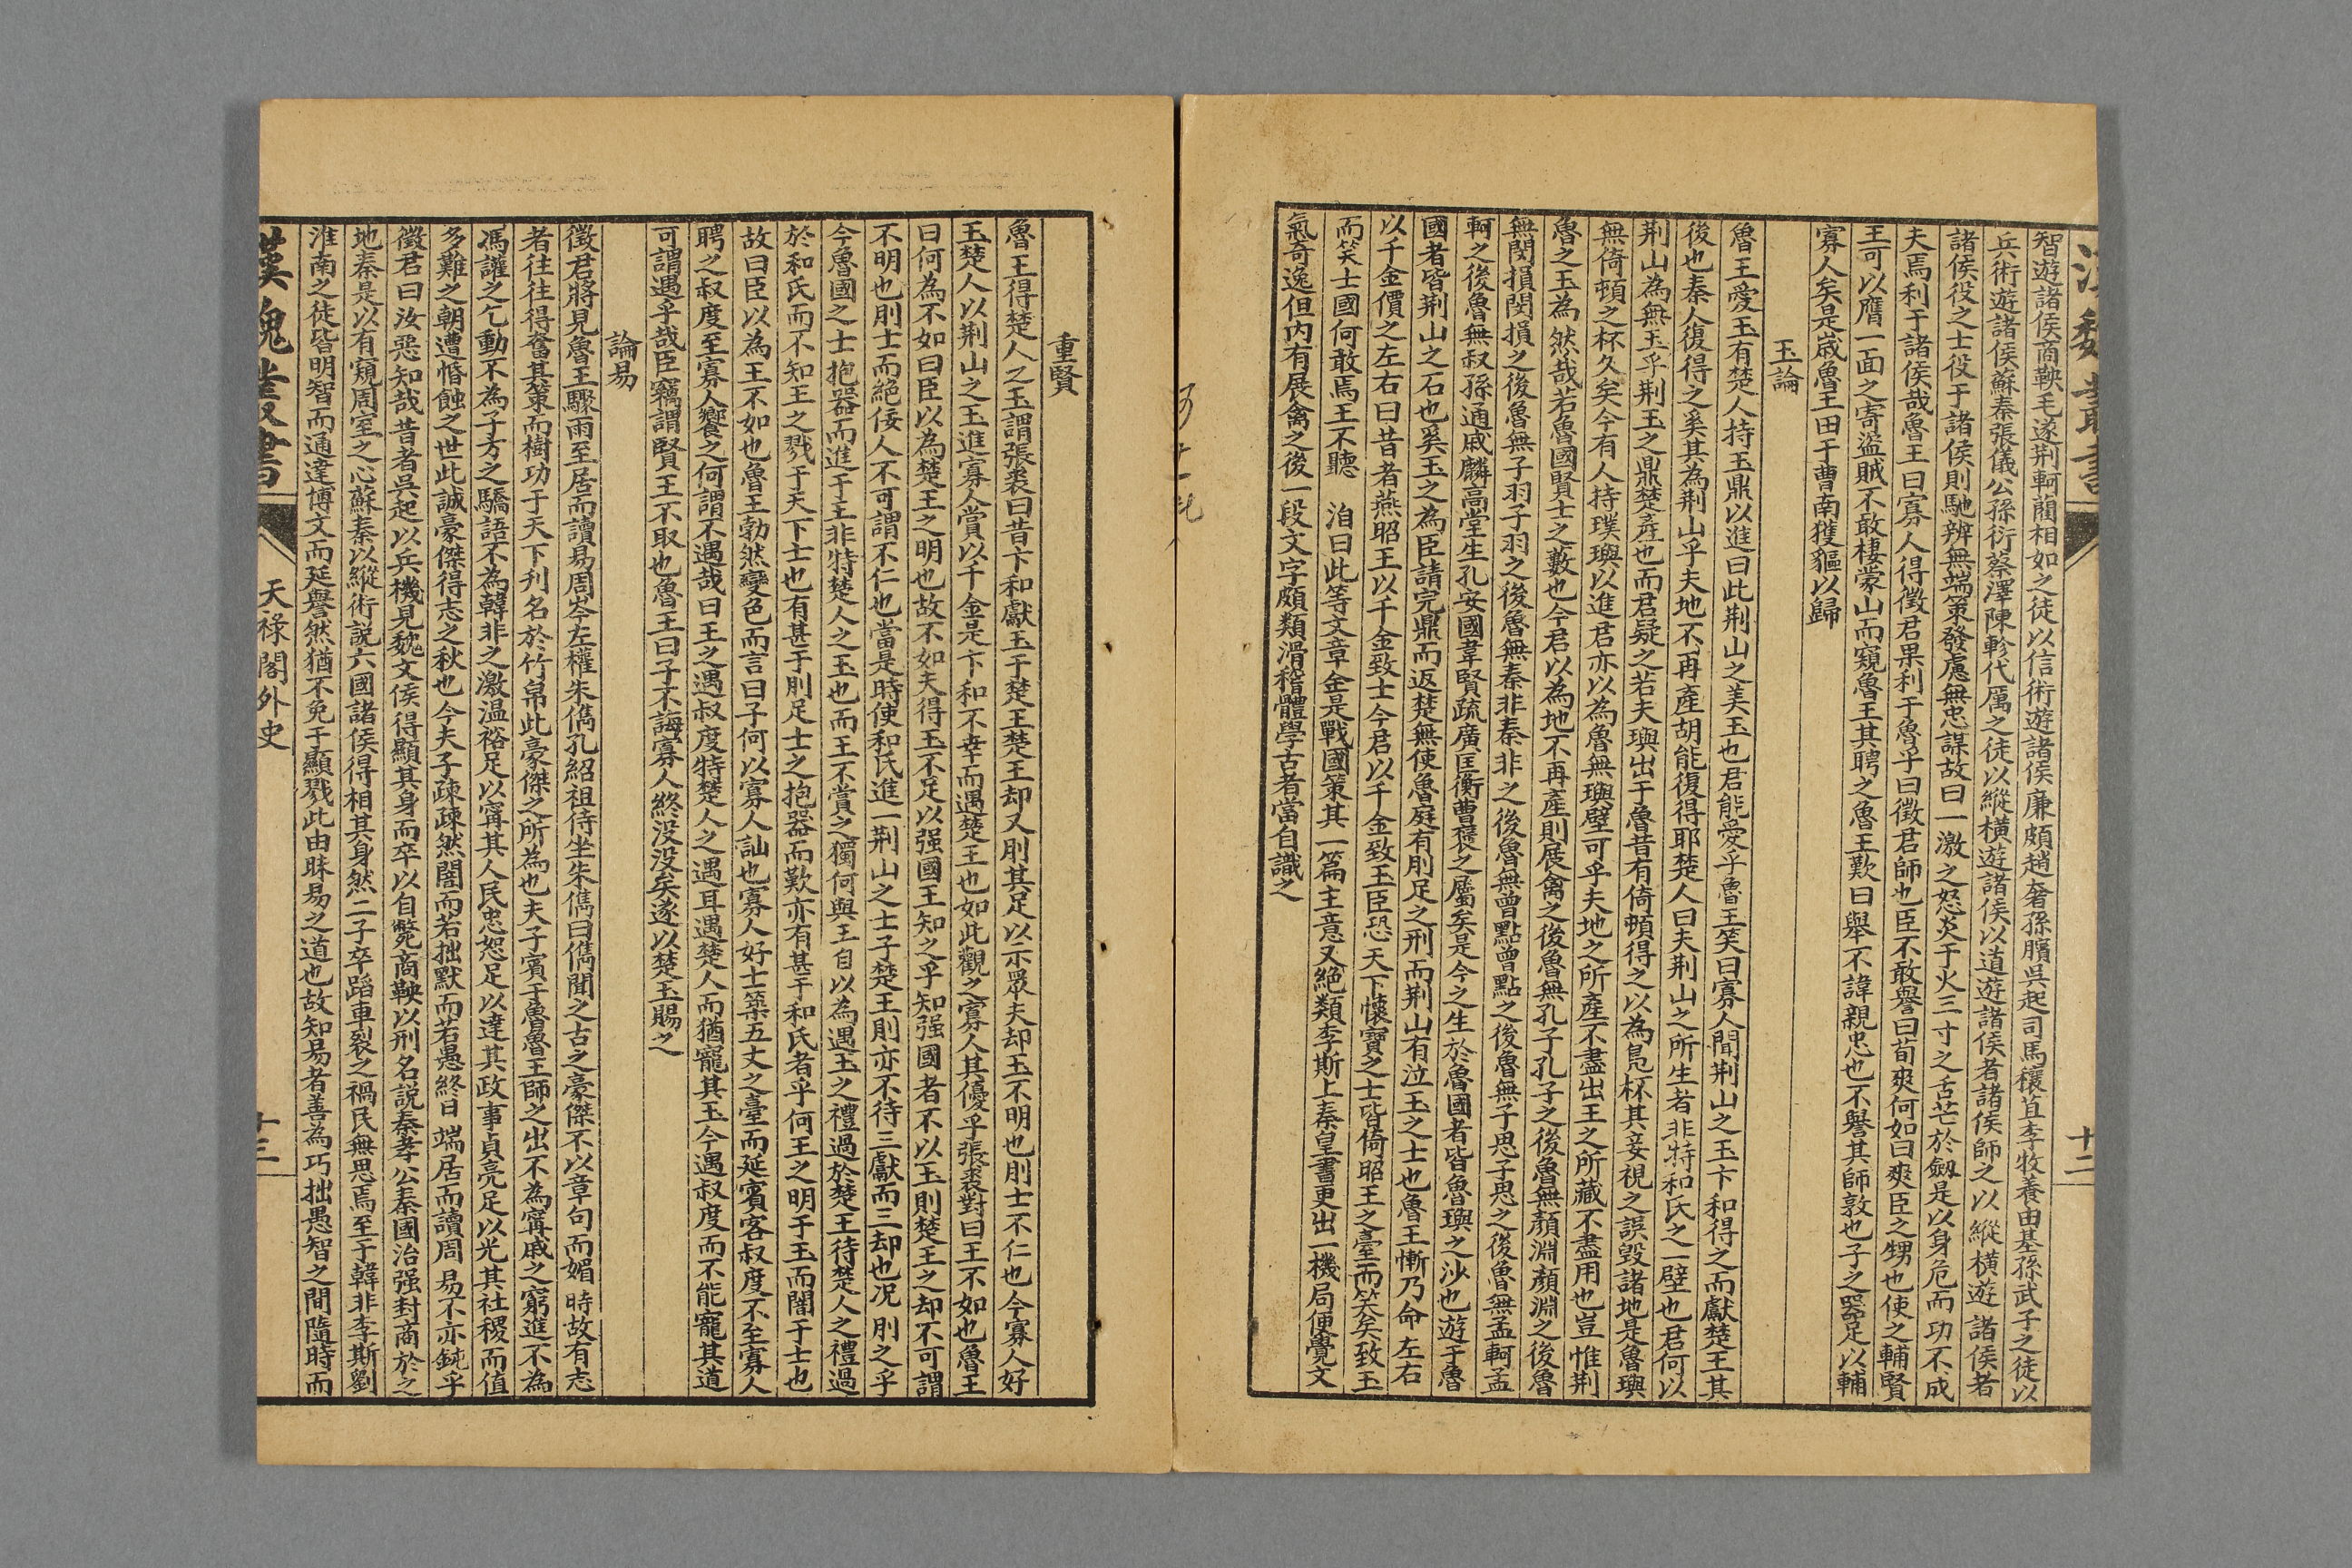 漢魏叢書
十二
智遊諸侯商鞅毛遂荆軻藺相如之徒以信術遊諸侯廉頗趙奢孫臏吳起司馬穰苴李牧養由基孫武子之徒以
兵術遊諸侯蘇秦張儀公孫衍蔡澤陳軫代厲之徒以縱橫遊諸侯以道遊諸侯者諸侯師之以縱橫遊諸侯者
諸侯役之士役于諸侯則馳辨無端策發慮無忠謀故曰一激之怒炎于火三寸之舌芒於劔是以身危而功不成
夫焉利于諸侯哉魯王曰寡人得徵君果利于魯乎曰徵君師也臣不敢譽曰荀爽何如曰爽臣之甥也使之輔賢
王可以膺一面之寄盜賊不敢棲蒙山而窺魯王其聘之魯王歎曰舉不諱親忠也不譽其師敦也子之器足以輔
寡人矣是歲魯王田于曹南獲貙以歸
玉論
魯王愛玉有楚人持玉鼎以進曰此荆山之美玉也君能愛乎魯王笑曰寡人聞荆山之玉卞和得之而獻楚王其
後也秦人復得之奚其為荆山乎夫地不再產胡能復得耶楚人曰夫荆山之所生者非特和氏之一壁也君何以
荆山為無玉乎荆玉之鼎楚產也而君疑之若夫璵出于魯昔有倚頓得之以為鳧杯其妾視之誤毀諸地是魯璵
無倚頓之杯久矣今有人持璞璵以進君亦以為魯無璵壁可乎夫地之所產不盡出王之所藏不盡用也豈惟荆
魯之玉為然哉若魯國賢士之藪也今君以為地不再產則展禽之後魯無孔子孔子之後魯無顏淵顏淵之後魯
無閔損閔損之後魯無子羽子羽之後魯無秦非秦非之後魯無曾點曾點之後魯無子思子思之後魯無孟軻孟
軻之後魯無叔孫通戚麟高堂生孔安國韋賢疏廣匡衡曹襃之屬矣是今之生於魯國者皆魯璵之沙也遊于魯
國者皆荆山之石也奚玉之為臣請完鼎而返楚無使魯庭有刖足之刑而荆山有泣玉之士也魯王慚乃命左右
以千金價之左右曰昔者燕昭王以千金致士今君以千金致玉臣恐天下懷寶之士皆倚昭王之臺而笑矣致玉
而笑士國何敢焉王不聽　洎曰此等文章金是戰國策其一篇主意又絕類李斯上秦皇書更出一機局便覺文
氣奇逸但內有展禽之後一段文字頗類滑稽體學古者當自識之
重賢
魯王得楚人之玉謂張裘曰昔卞和獻玉于楚王楚王却又刖其足以示眾夫却玉不明也刖士不仁也今寡人好
玉楚人以荆山之玉進寡人賞以千金是卞和不幸而遇楚王也如此觀之寡人其優乎張裘對曰王不如也魯王
曰何為不如曰臣以為楚王之明也故不如夫得玉不足以强國王知之乎知强國者不以玉則楚王之却不可謂
不明也刖士而絕佞人不可謂不仁也當是時使和氏進一荆山之士子楚王則亦不待三獻而三却也況刖之乎
今魯國之士抱器而進于王非特楚人之玉也而王不賞之獨何與王自以為遇玉之禮過於楚王待楚人之禮過
於和氏而不知王之戮于天下士也有甚于刖足士之抱器而歎亦有甚于和氏者乎何王之明于玉而闇于士也
故曰臣以為王不如也魯王勃然變色而言曰子何以寡人訕也寡人好士築五丈之臺而延賓客叔度不至寡人
聘之叔度至寡人饗之何謂不遇哉曰王之遇叔度特楚人之遇耳遇楚人而猶寵其玉今遇叔度而不能寵其道
可謂遇乎哉臣竊謂賢王不取也魯王曰子不誨寡人終沒沒矣遂以楚玉賜之
論易
徵君將見魯王驟雨至居而讀易周岑左權朱儁孔紹祖侍坐朱儁曰儁聞之古之豪傑不以章句而媚時故有志
者往往得奮其策而樹功于天下刋名於竹帛此豪傑之所為也夫子賓于魯魯王師之出不為甯戚之窮進不為
馮讙之乞動不為子方之驕語不為韓非之激温裕足以甯其人民忠恕足以達其政事貞亮足以光其社稷而值
多難之朝遭惛蝕之世此誠豪傑得志之秋也今夫子疎疎然闇而若拙默而若愚終日端居而讀周易不亦鈍乎
徵君曰汝惡知哉昔者吳起以兵機見魏文侯得顯其身而卒以自斃商鞅以刑名説秦孝公秦國治强封商於之
地秦是以有窺周室之心蘇秦以縱術説六國諸侯得相其身然二子卒蹈車裂之禍民無思焉至于韓非李斯劉
淮南之徒皆明智而通達博文而延譽然猶不免于顯戮此由昧易之道也故知易者善為巧拙愚智之間隨時而
漢魏叢書
天祿閣外史
十三